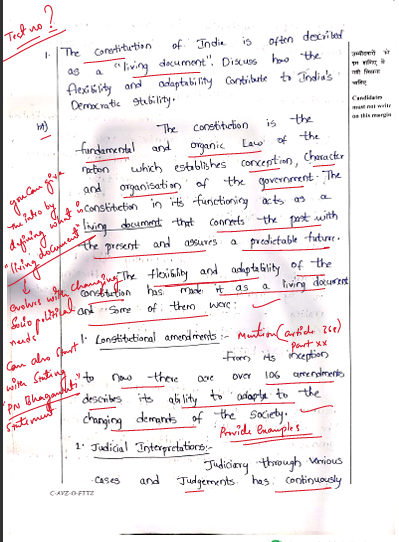 Test no?
1. The Constitution of India is often described
as a "living document". Discuss how the
flexibility and adaptability Contribute to India's
Democratic stability.
उम्मीदवारों को
इस हाशिए में
नहीं लिखना
चाहिए
Candidates
must not write
on this margin
The constitution is the
fundamental and organic Law of the
nation which establishes conception, character
and organisation of the government. The
constitution in its functioning acts as a
living document that connects the past with
the present and assures a predictable future.
you can give
the intro by
defining what is
"living document"
↓
evolves with changing
Socio political
needs
Can also start
with Stating
"PN Bhagawati's
Statement
The flexibility and adaptability of the
constitution has made it as a living document
and some of them were:
1. Constitutional amendments:- Mention (article 368)
Part XX
From its inception
to now there are over 106 amendments
describes its ability to adapte to the
changing demands of the society.
Provide Examples
2. Judicial Interpretations:-
Judiciary through various
cases and Judgements has continuously
C-AVZ-O-FTTZ